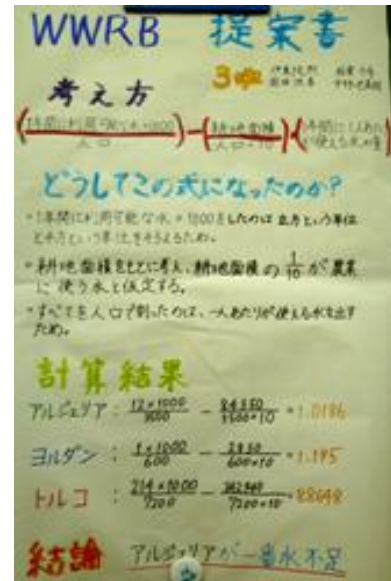 WWRB 提案書
3班
考え方
(1年間に利用可能な水×1000
人口) - (耕地面積
人口×10) + (1年間に1人あたり
が使える水の量)
どうしてこの式になったのか?
・1年間に利用可能な水×1000をしたのは 立方という単位
と平方という単位をそろえるため。
・耕地面積をもとに考え、耕地面積の1/10が農業
に使う水と仮定する。
・すべてを人口で割ったのは、一人あたりが使える水を出す
ため。
計算結果
アルジェリア : 12×1000/3500 - 84350/3500×10 = 1.0186
ヨルダン : 1×1000/600 - 2830/600×10 = 1.195
トルコ : 214×1000/7200 - /7200×10 = 
結論 アルジェリアが一番水不足